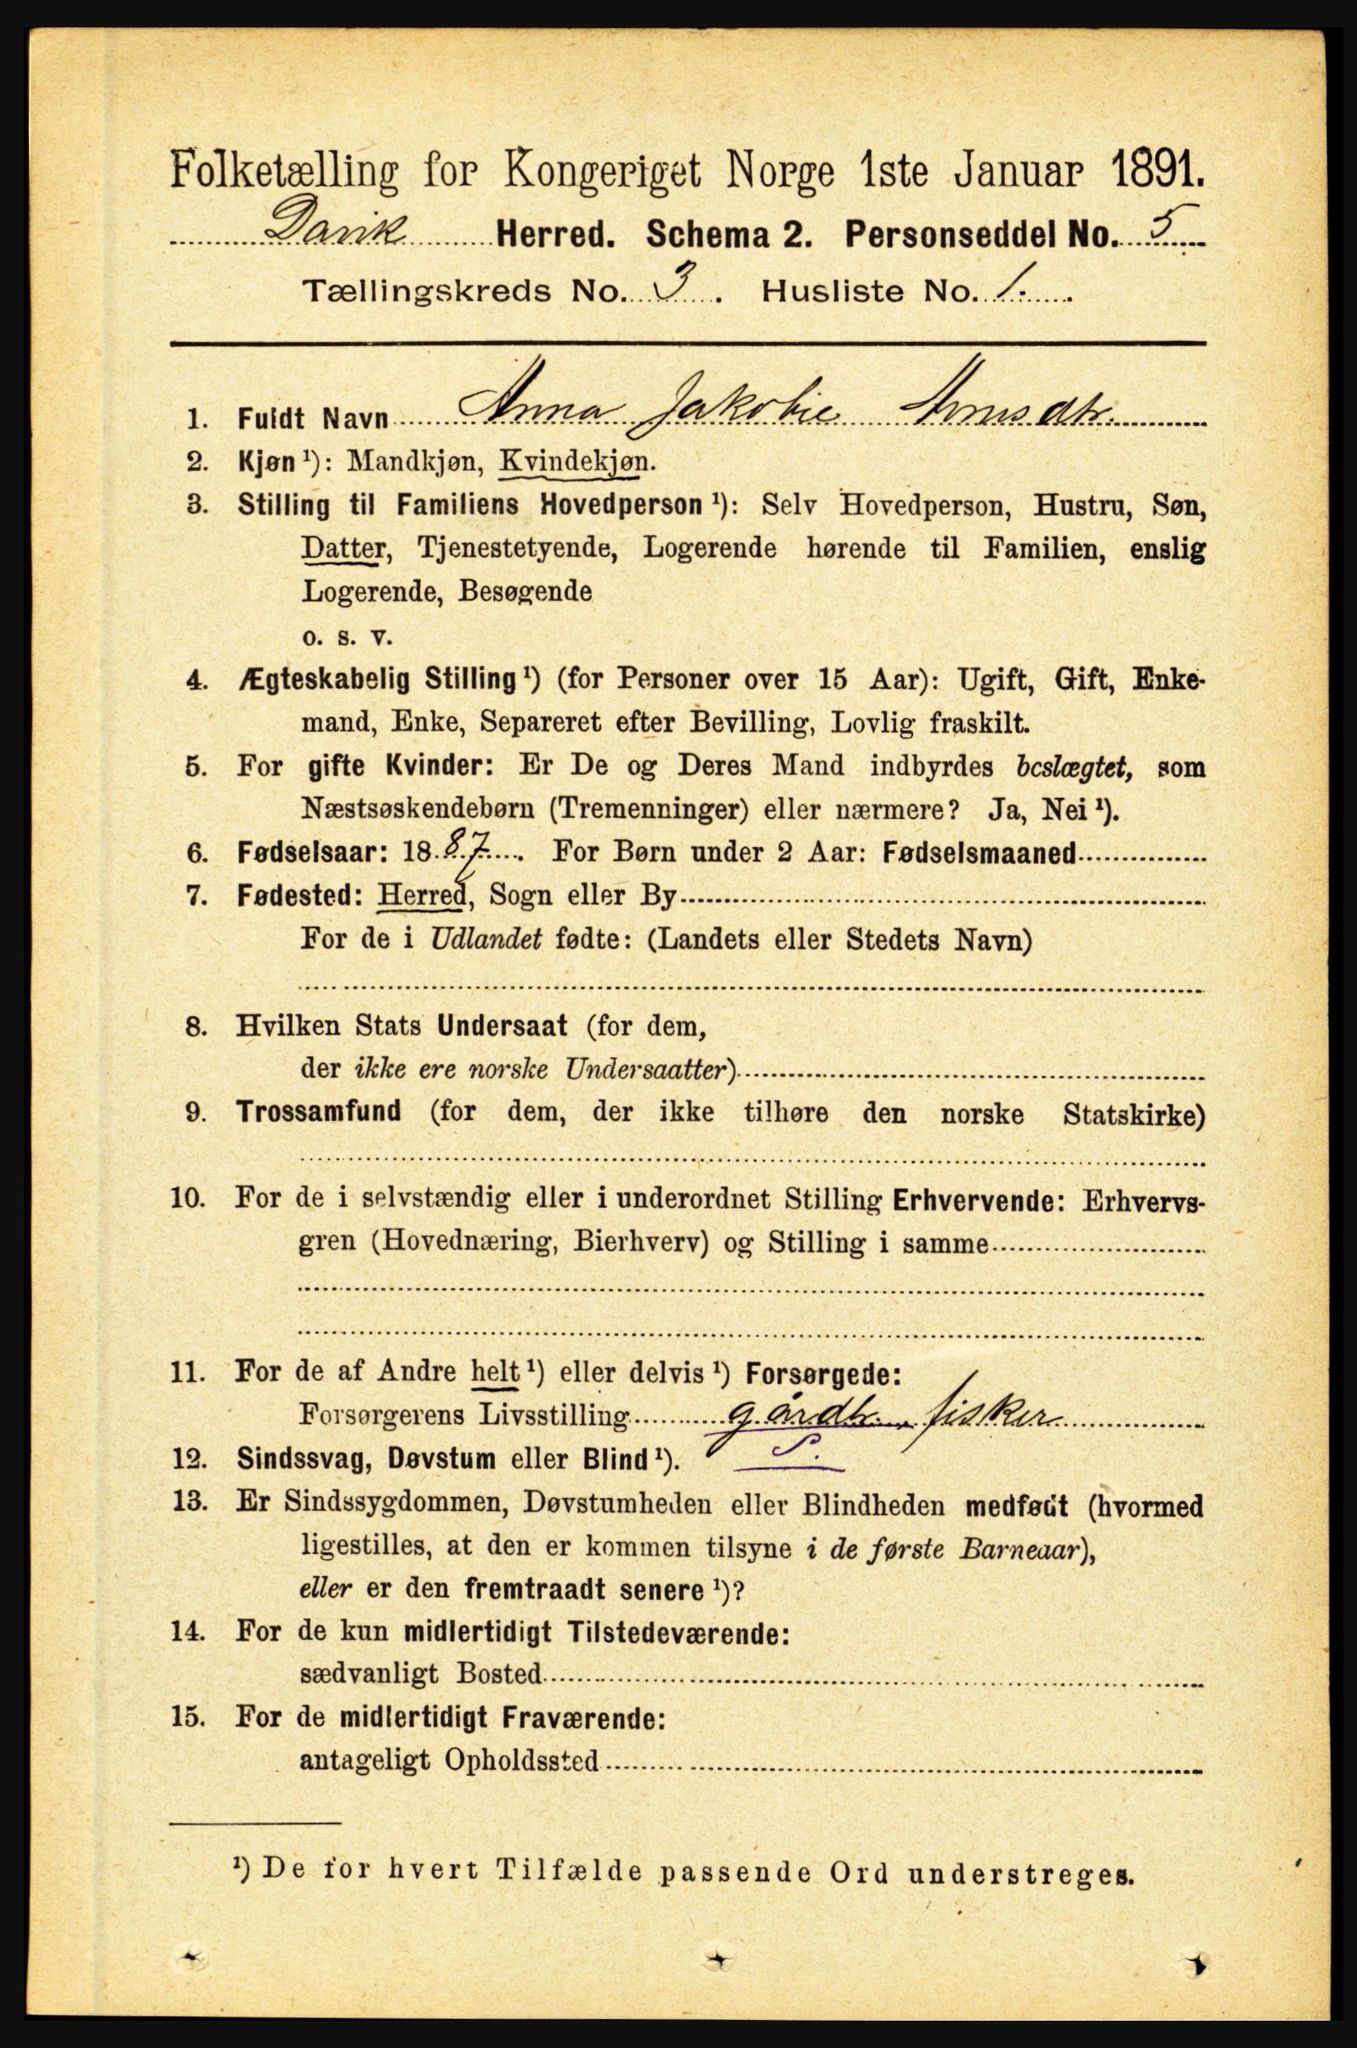 Folketælling for Kongeriget Norge 1ste Januar 1891.
Davik Herred. Schema 2. Personseddel No. 5
Tællingskreds No. 3. Husliste No. 1.
1. Fuldt Navn Anna Jakobie
2. Kjøn ¹): Mandkjøn, Kvindekjøn.
3. Stilling til Familiens Hovedperson ¹): Selv Hovedperson, Hustru, Søn,
Datter, Tjenestetyende, Logerende hørende til Familien, enslig
Logerende, Besøgende
o. s. v.
4. Ægteskabelig Stilling ¹) (for Personer over 15 Aar): Ugift, Gift, Enke-
mand, Enke, Separeret efter Bevilling, Lovlig fraskilt.
5. For gifte Kvinder: Er De og Deres Mand indbyrdes beslægtet, som
Næstsøskendebørn (Tremenninger) eller nærmere? Ja, Nei ¹).
6. Fødselsaar: 1887. For Børn under 2 Aar: Fødselsmaaned
7. Fødested: Herred, Sogn eller By
For de i Udlandet fødte: (Landets eller Stedets Navn)
8. Hvilken Stats Undersaat (for dem,
der ikke ere norske Undersaatter)
9. Trossamfund (for dem, der ikke tilhøre den norske Statskirke)
10. For de i selvstændig eller i underordnet Stilling Erhvervende: Erhvervs-
gren (Hovednæring, Bierhverv) og Stilling i samme
11. For de af Andre helt ¹) eller delvis ¹) Forsørgede:
Forsørgerens Livsstilling gårdbr. fisker
12. Sindssvag, Døvstum eller Blind ¹). S.
13. Er Sindssygdommen, Døvstumheden eller Blindheden medfødt (hvormed
ligestilles, at den er kommen tilsyne i de første Barneaar),
eller er den fremtraadt senere ¹)?
14. For de kun midlertidigt Tilstedeværende:
sædvanligt Bosted
15. For de midlertidigt Fraværende:
antageligt Opholdssted
¹) De for hvert Tilfælde passende Ord understreges.